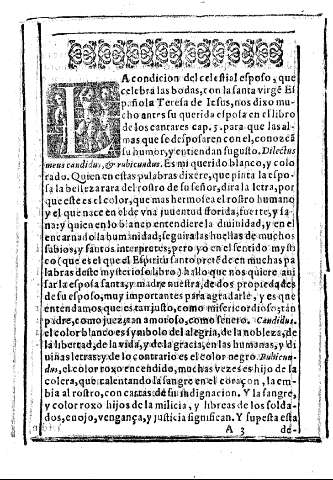 LA condicion del celestial esposo, que
celebra las bodas, con la santa virgē Es
pañola Teresa de Iesus, nos dixo mu
cho antes su querida esposa en el libro
de los cantares cap. 5. para que las al-
mas que se desposaren con el, conozcā
su humor, y entiendan su gusto. Dilectus
meus candidus, & rubicundus. Es mi querido blanco, y colo
rado. Quien en estas palabras dixere, que pinta la espo-
sa la belleza rara del rostro de su señor, dira la letra, por
que este es el color, que mas hermosea el rostro humano
y el que nace en el de vna juuentud florida, fuerte, y sa-
na: y quien en lo blanco entendiere la diuinidad, y en el
encarnado la humanidad, seguira las huellas de muchos
sabios, y santos interpretes, pero yo en el sentido mysti
co (que es el que el Espiritu santo pretēde en muchas pa
labras deste mysterioso libro) hallo que nos quiere aui
sar la esposa santa, y madre nuestra, de dos propiedades
de su esposo, muy importantes para agradarle, y es que
entendamos que es tan justo, como misericordioso: tan
padre, como juez: tan amoroso, como seuero. Candidus.
el color blanco es symbolo del alegria, de la nobleza, de
la libertad, de la vida, y de la gracia, en las humanas, y di
uinas letras: y de lo contrario es el color negro. Rubicun-
dus, el color roxo encendido, muchas vezes es hijo de la
colera, que calentando la sangre en el coraçon, la em-
bia al rostro, con cartas de su indignacion. Y la sangre,
y color roxo hijos de la milicia, y libreas de los solda-
dos, enojo, vengança, y justicia significan. Y supuesta esta
A 3 de-